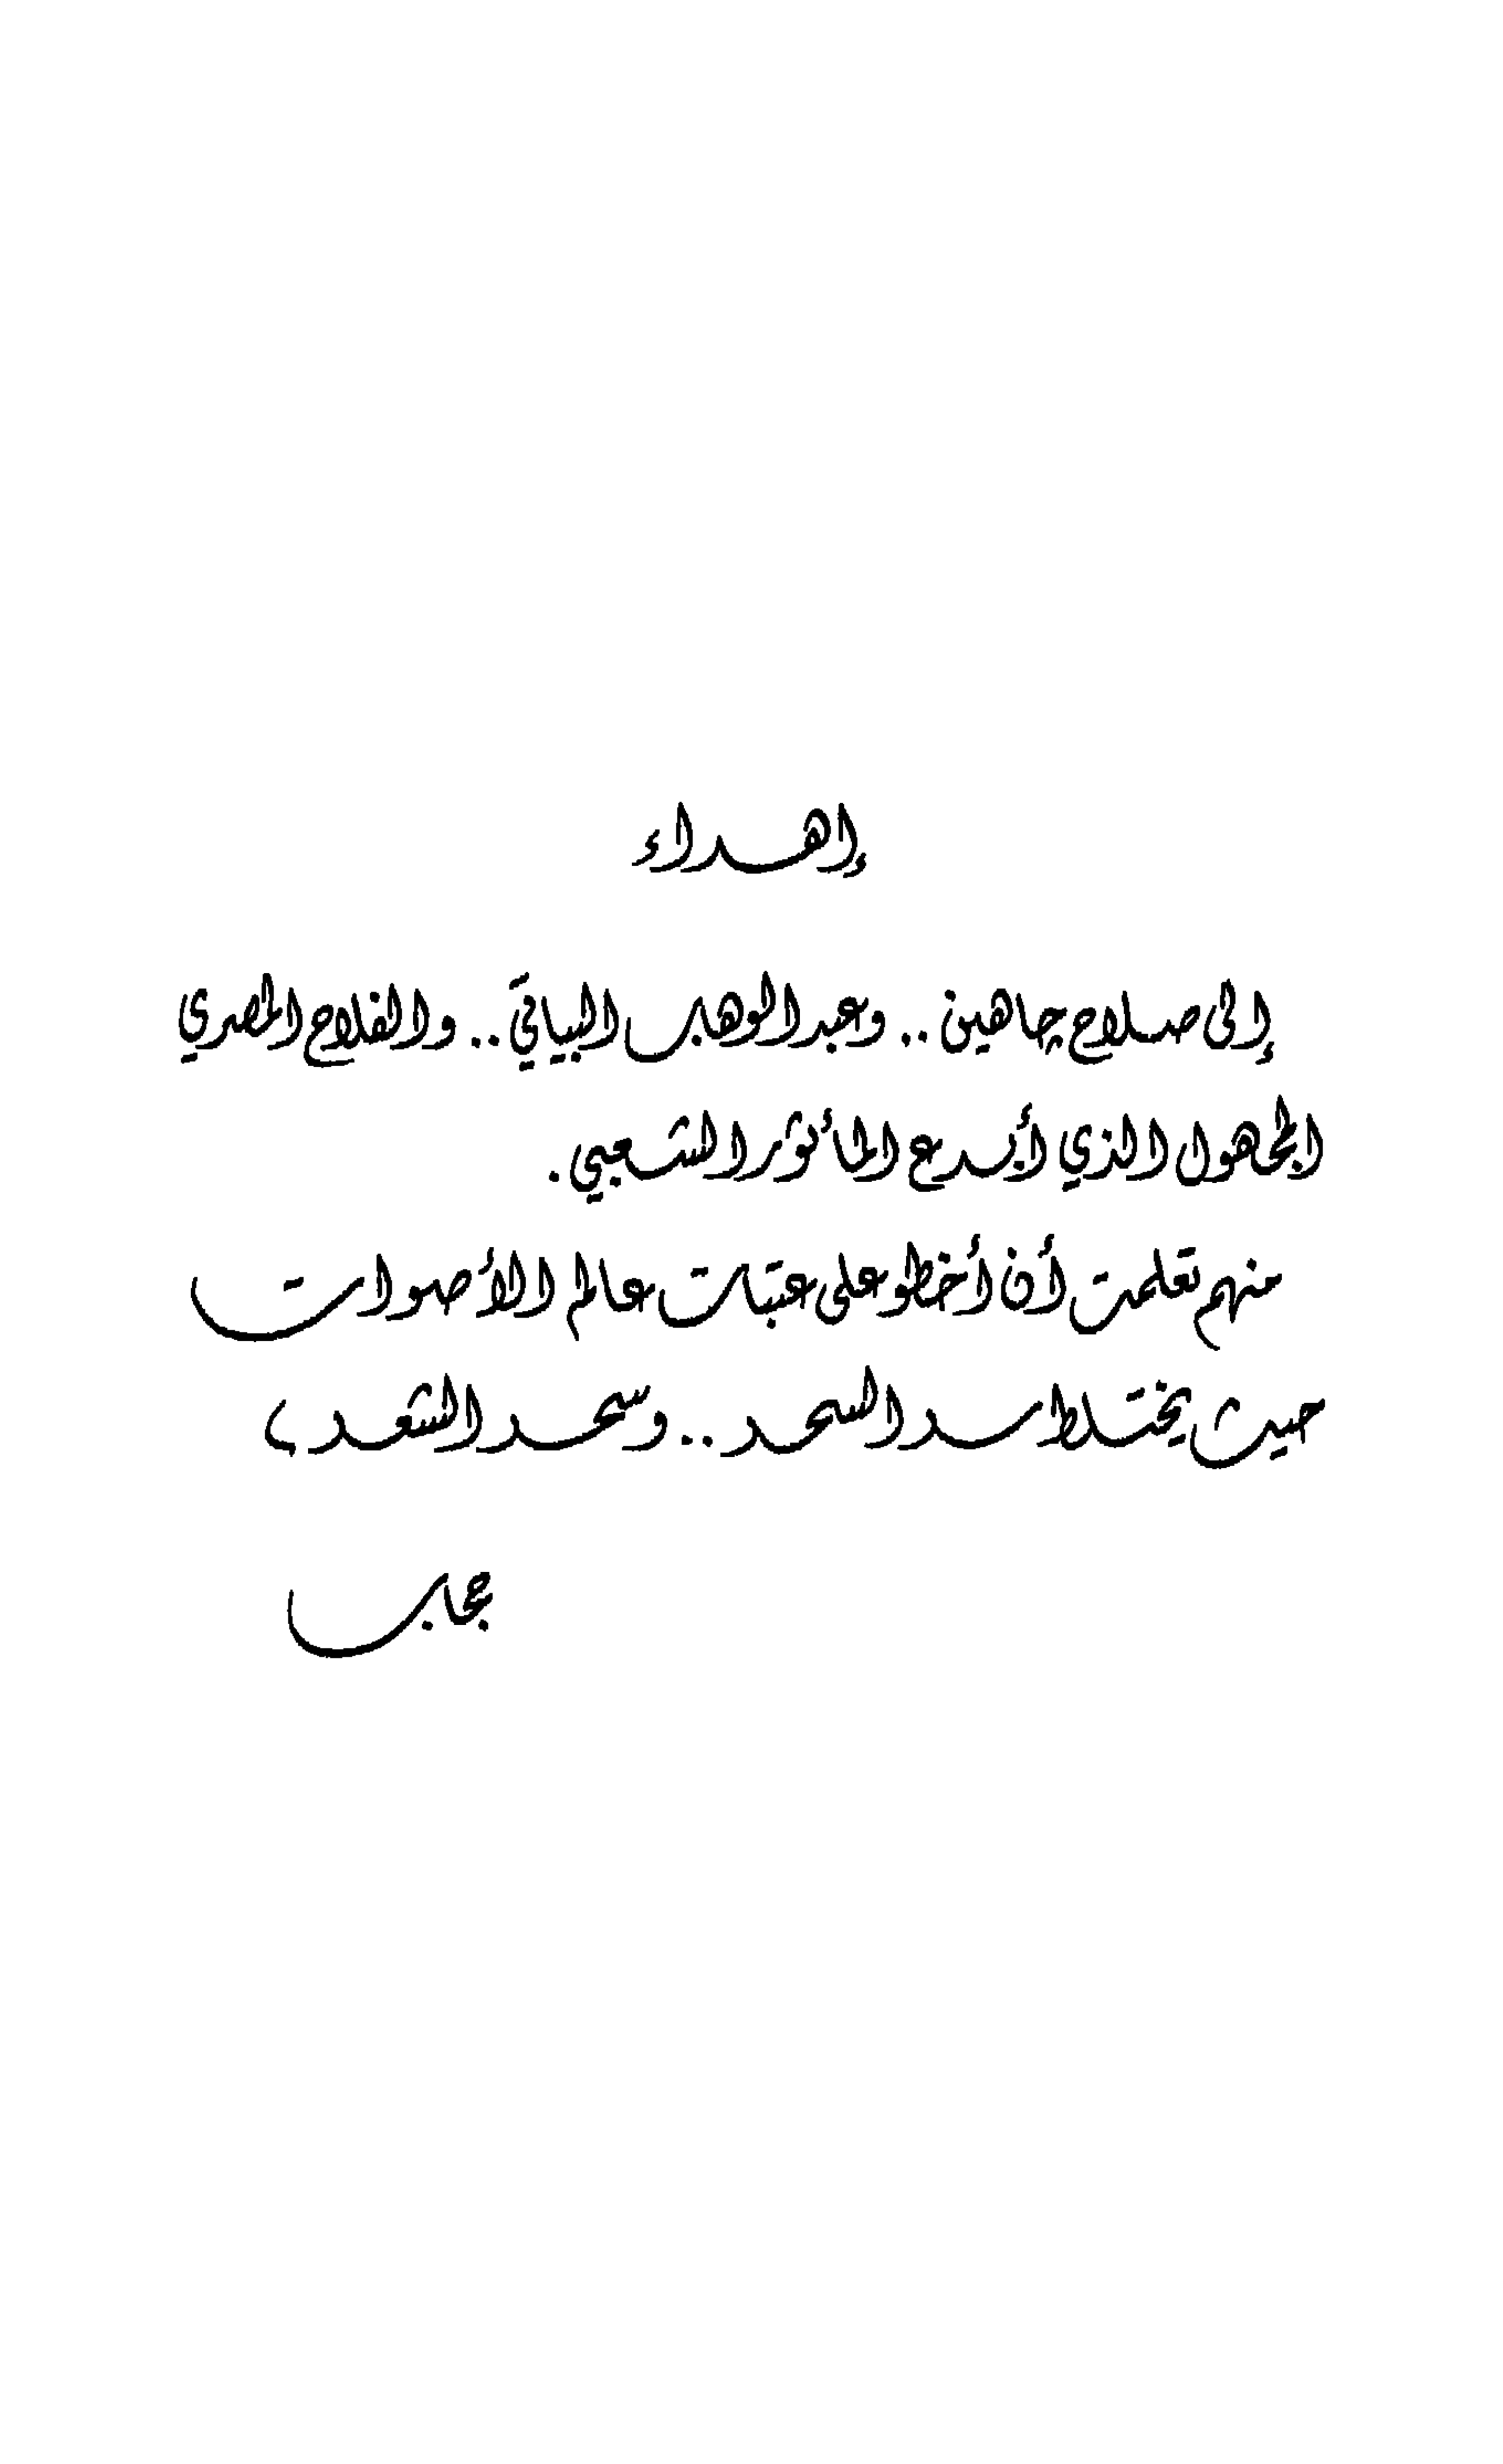 إهداء
إلى صلاح جاهين .. وعبد الوهاب البياتي .. والفلاح المصري
المجهول الذي أبدع المأثور الشعبي .
منهم تعلمت أن أخطو على عتبات عالم الأصوات
حيث يختلط سر السحر .. وسحر الشعر
حجاب